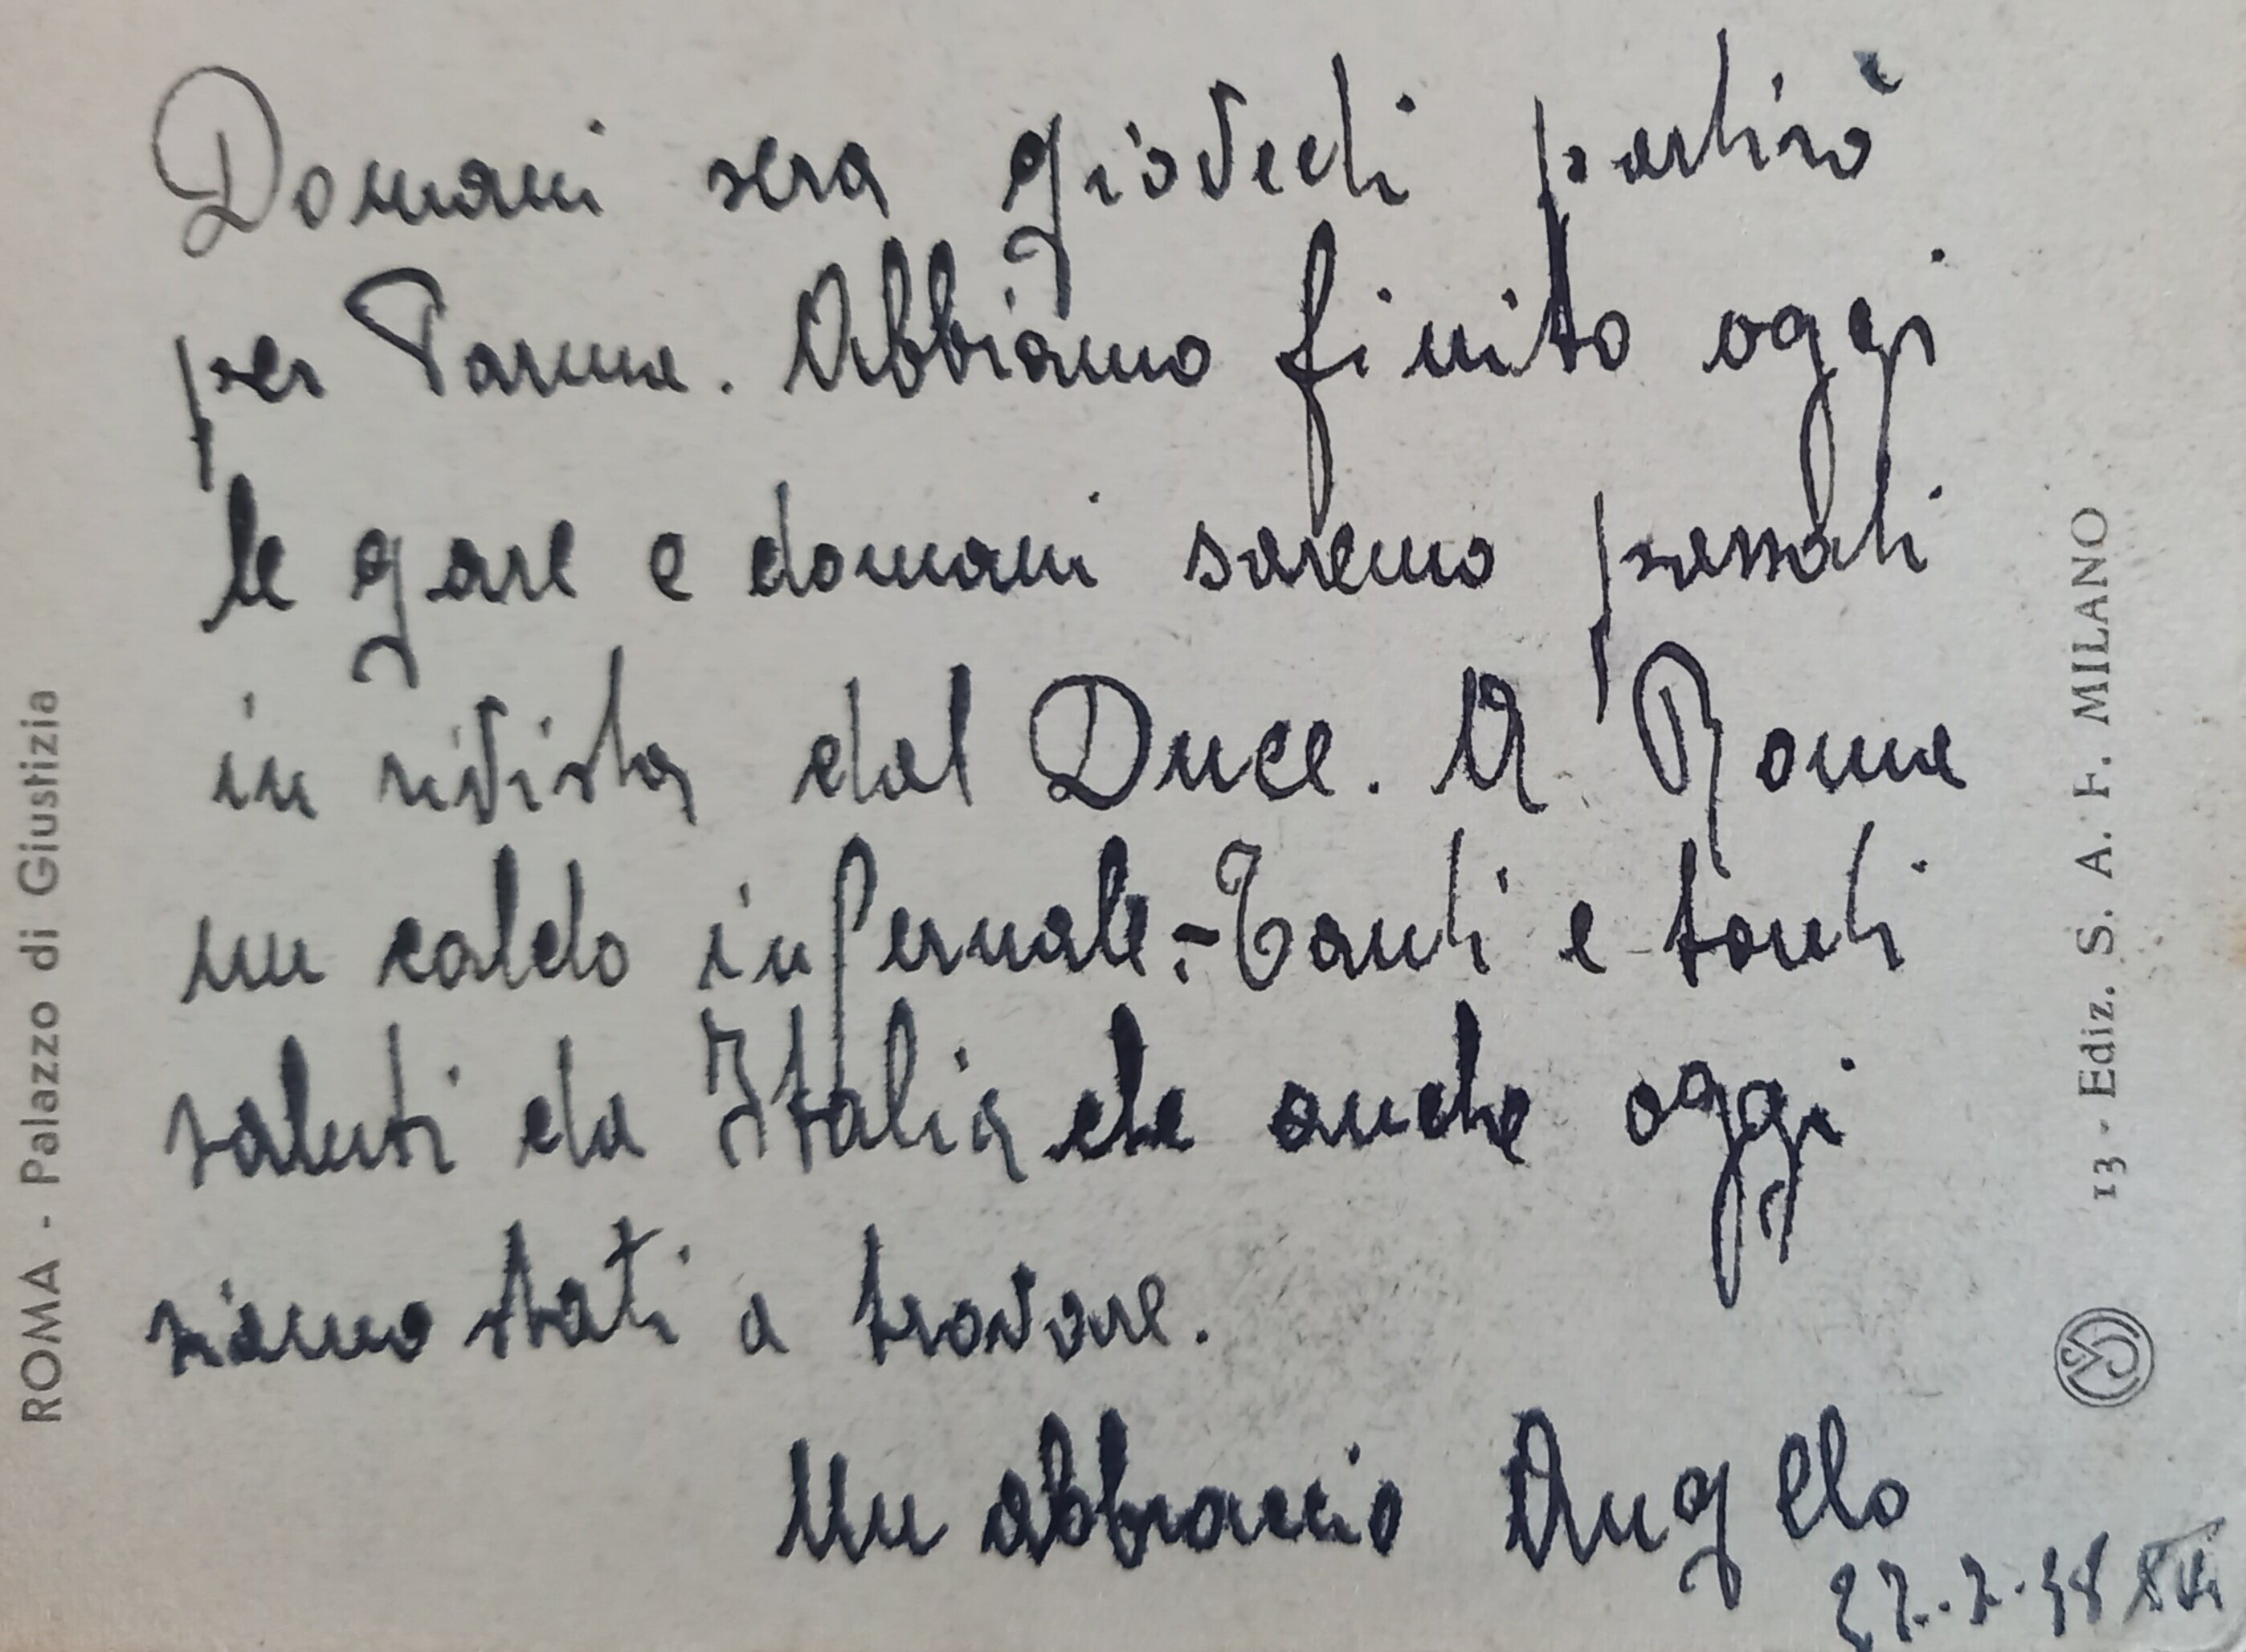 Domani sera giovedi partirò
per Parma. Abbiamo finito oggi
le gare e domani saremo passati
in rivista dal Duce. A Roma
un caldo infernale.- Tanti e tanti
saluti da Italia che anche oggi
siamo stati a trovare.
Un abbraccio Angelo
27.7.38 XVI
ROMA - Palazzo di Giustizia
13 - Ediz. S. A. F. MILANO